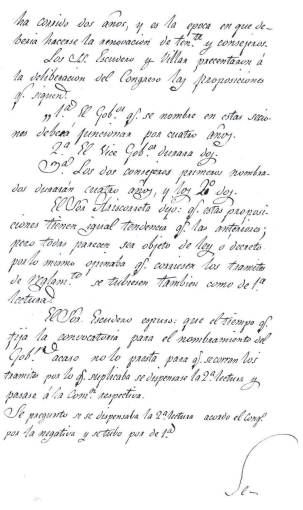 ha corrido dos años, y es la epoca en que de-
beria hacerse la renovacion de ten.te y consejeros.
Los SS. Escudero y Villar presentaron á
la deliberacion del Congreso las proposiciones
q.e siguen.
„1.a El Gob.or q.e se nombre en estas sesio-
nes deberá funcionar por cuatro años.
2.a El Vice Gob.or durara dos.
3.a Los dos consejeros primeros nombra-
dos duraran cuatro años, y los 2.os dos.
El Sor. dijo: q.e estas proposi-
ciones tienen igual tendencia q.e las anteriores;
pero todas parecen ser objeto de ley o decreto
por lo mismo opinaba q.e corriesen los tramites
de Reglam.to se tubiesen tambien como de 1.a
lectura.
El Sor. Escudero espuso: que el tiempo q.e
fija la convocatoria para el nombramiento del
Gob.or acaso no lo presta, para q.e se corran los
tramites por lo q.e suplicaba se dispensase la 2.a lectura y
pasase á la Com.on respectiva.
Se pregunto si se dispensaba la 2.a lectura acordó el Cong.o
por la negativa y se tubo por de 1.a
Se-